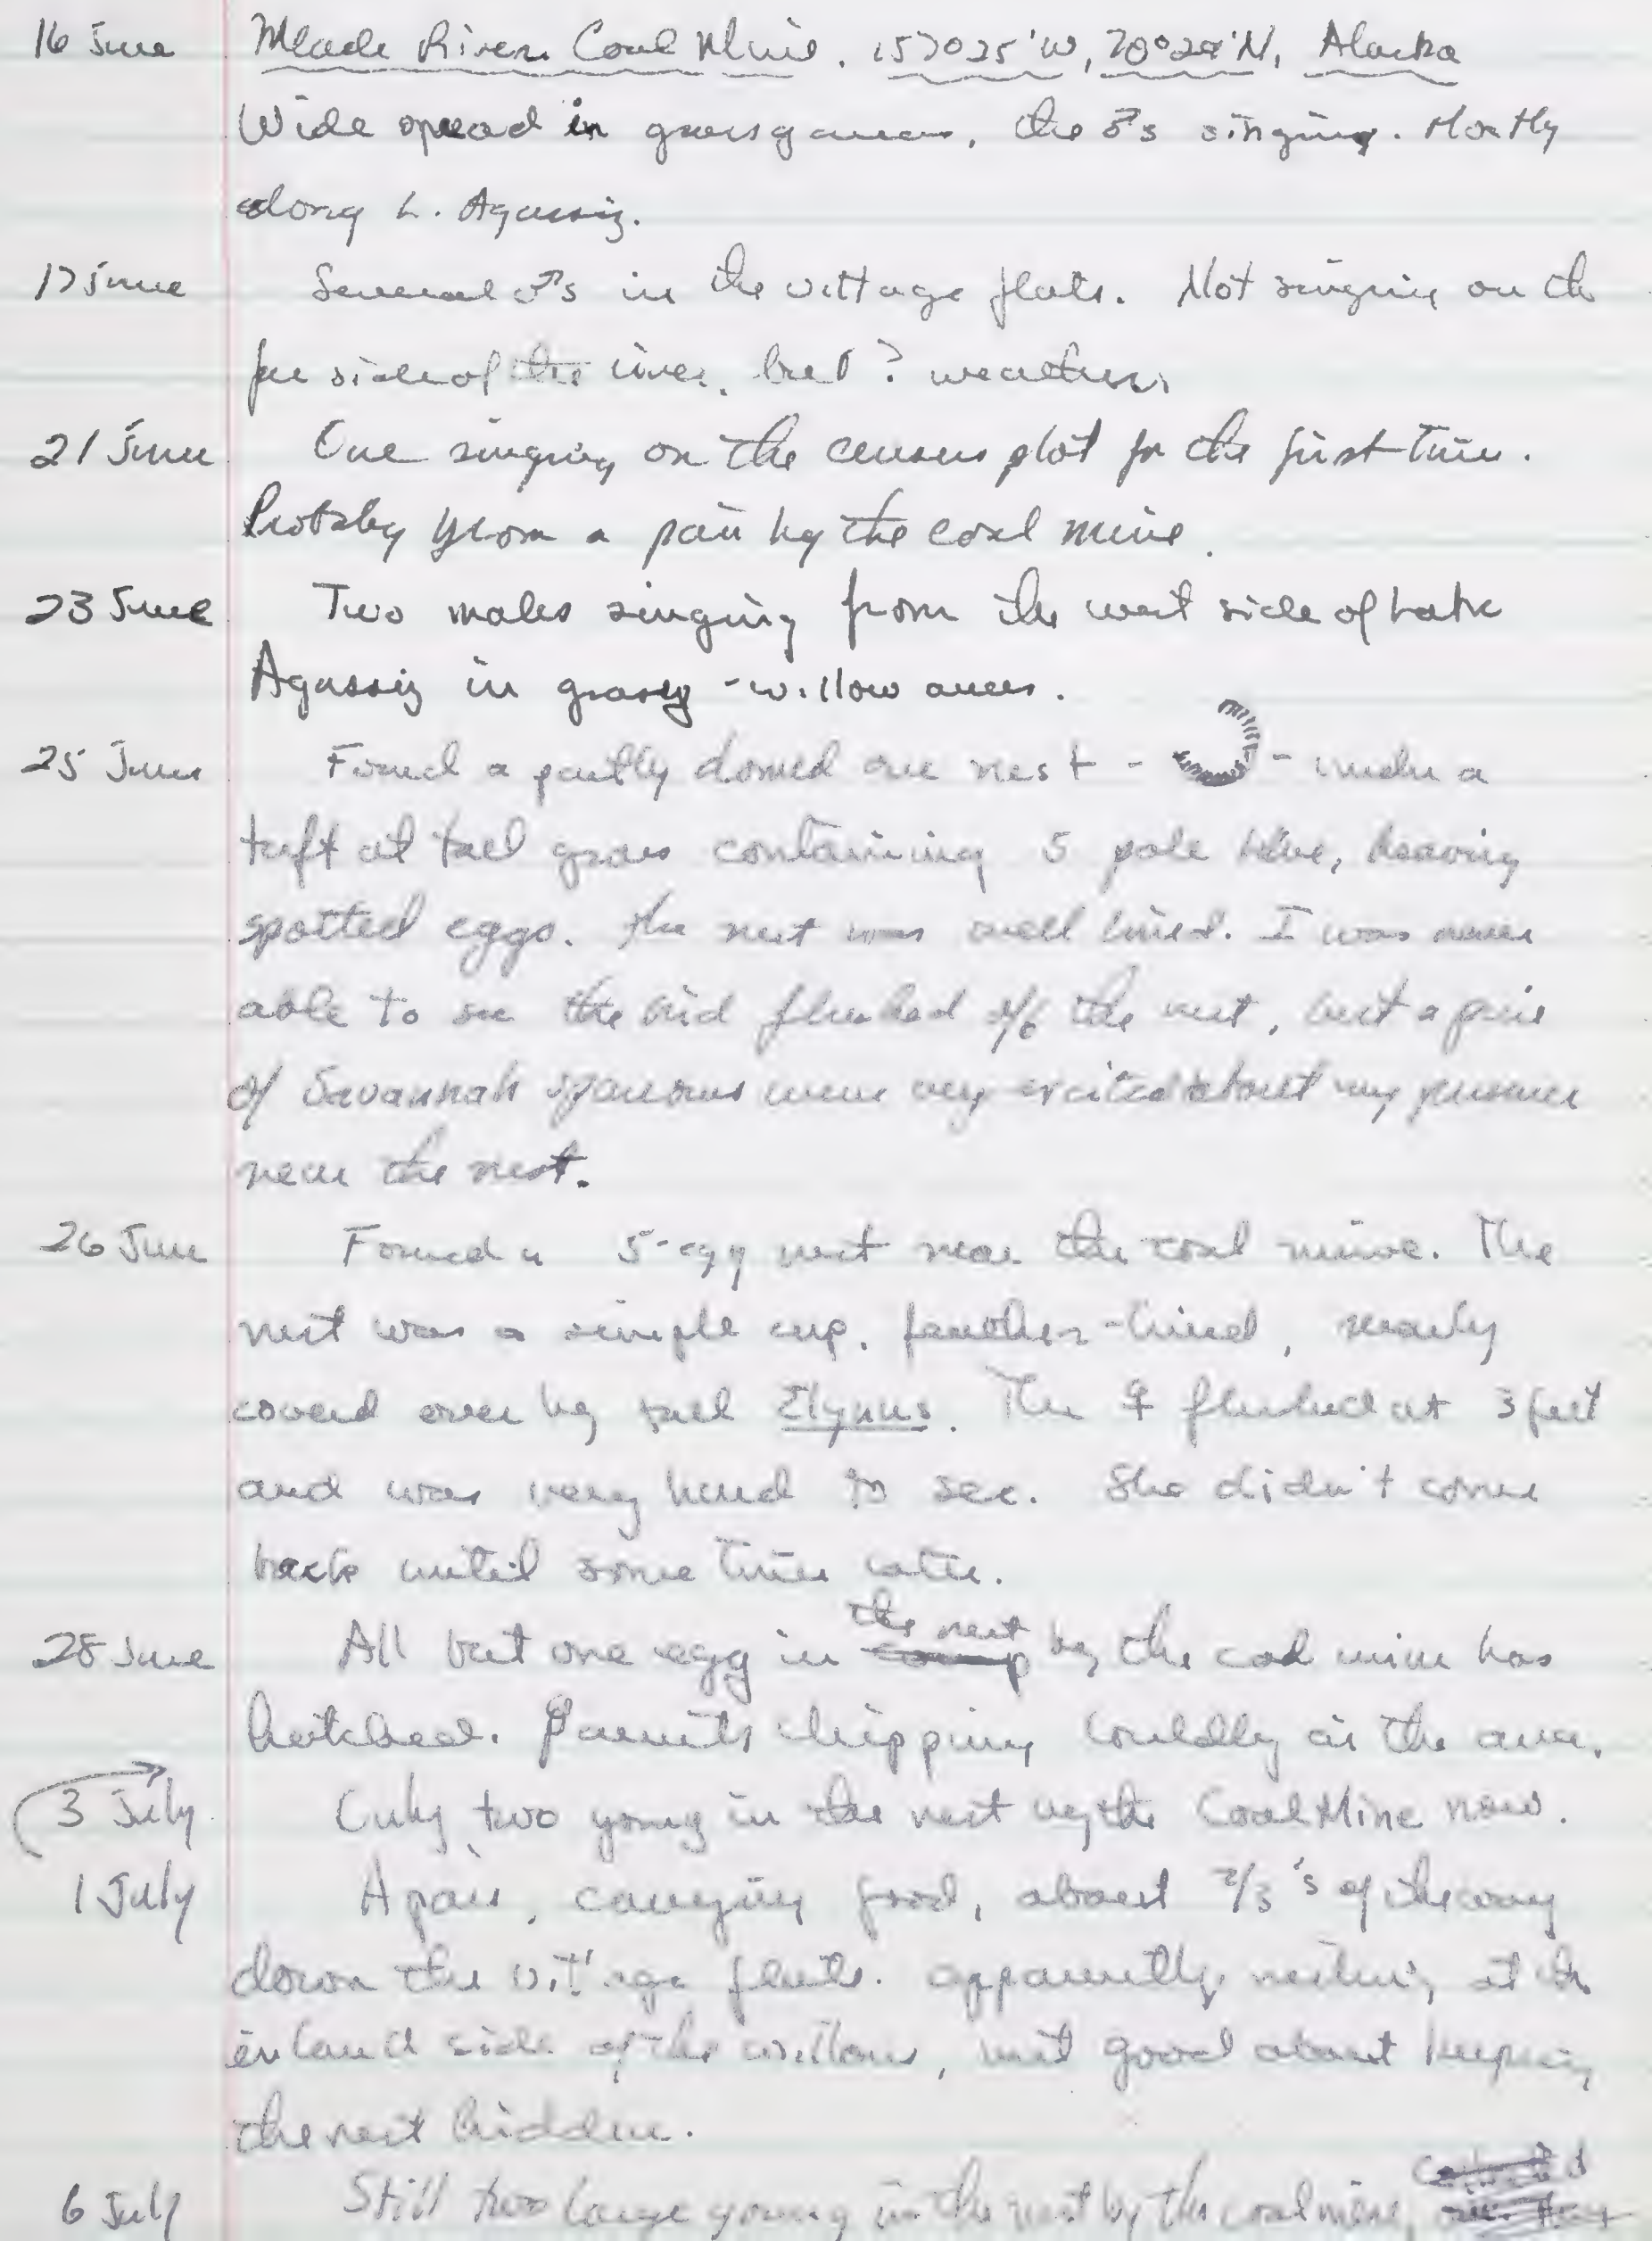 16 June Meade River Coal Mine. 157°25'W, 70°28'N, Alaska
Wide spread in grassy areas, the ♂s singing. Mostly
along L. Agassiz.
17 June Several ♂s in the village flats. Not singing on the
far side of the river, but ? weather.
21 June One singing on the census plot for the first time.
Probably from a pair by the coal mine.
23 June Two males singing from the west side of Lake
Agassiz in grassy-willow areas.
25 June Found a partly domed over nest - - under a
tuft of tall grass containing 5 pale blue, heavily
spotted eggs. The nest was well lined. I was never
able to see the bird flushed off the nest, but a pair
of Savannah sparrows were very excited about my presence
near the nest.
26 June Found a 5-egg nest near the coal mine. The
nest was a simple cup, feather-lined, nearly
coverd over by tall Elymus. The ♀ flushed at 3 feet
and was very hard to see. She didn't come
back until some time later.
28 June All but one egg in the nest by the coal mine has
hatched. Parents chipping louldly in the area.
3 July Only two young in the nest by the Coal Mine now.
1 July A pair, carrying food, about 2/3's of the way
down the village flats. apparently nesting at the
inland side of the willows, but good about keeping
the nest hidden.
6 July Still two large young in the nest by the coal mine,